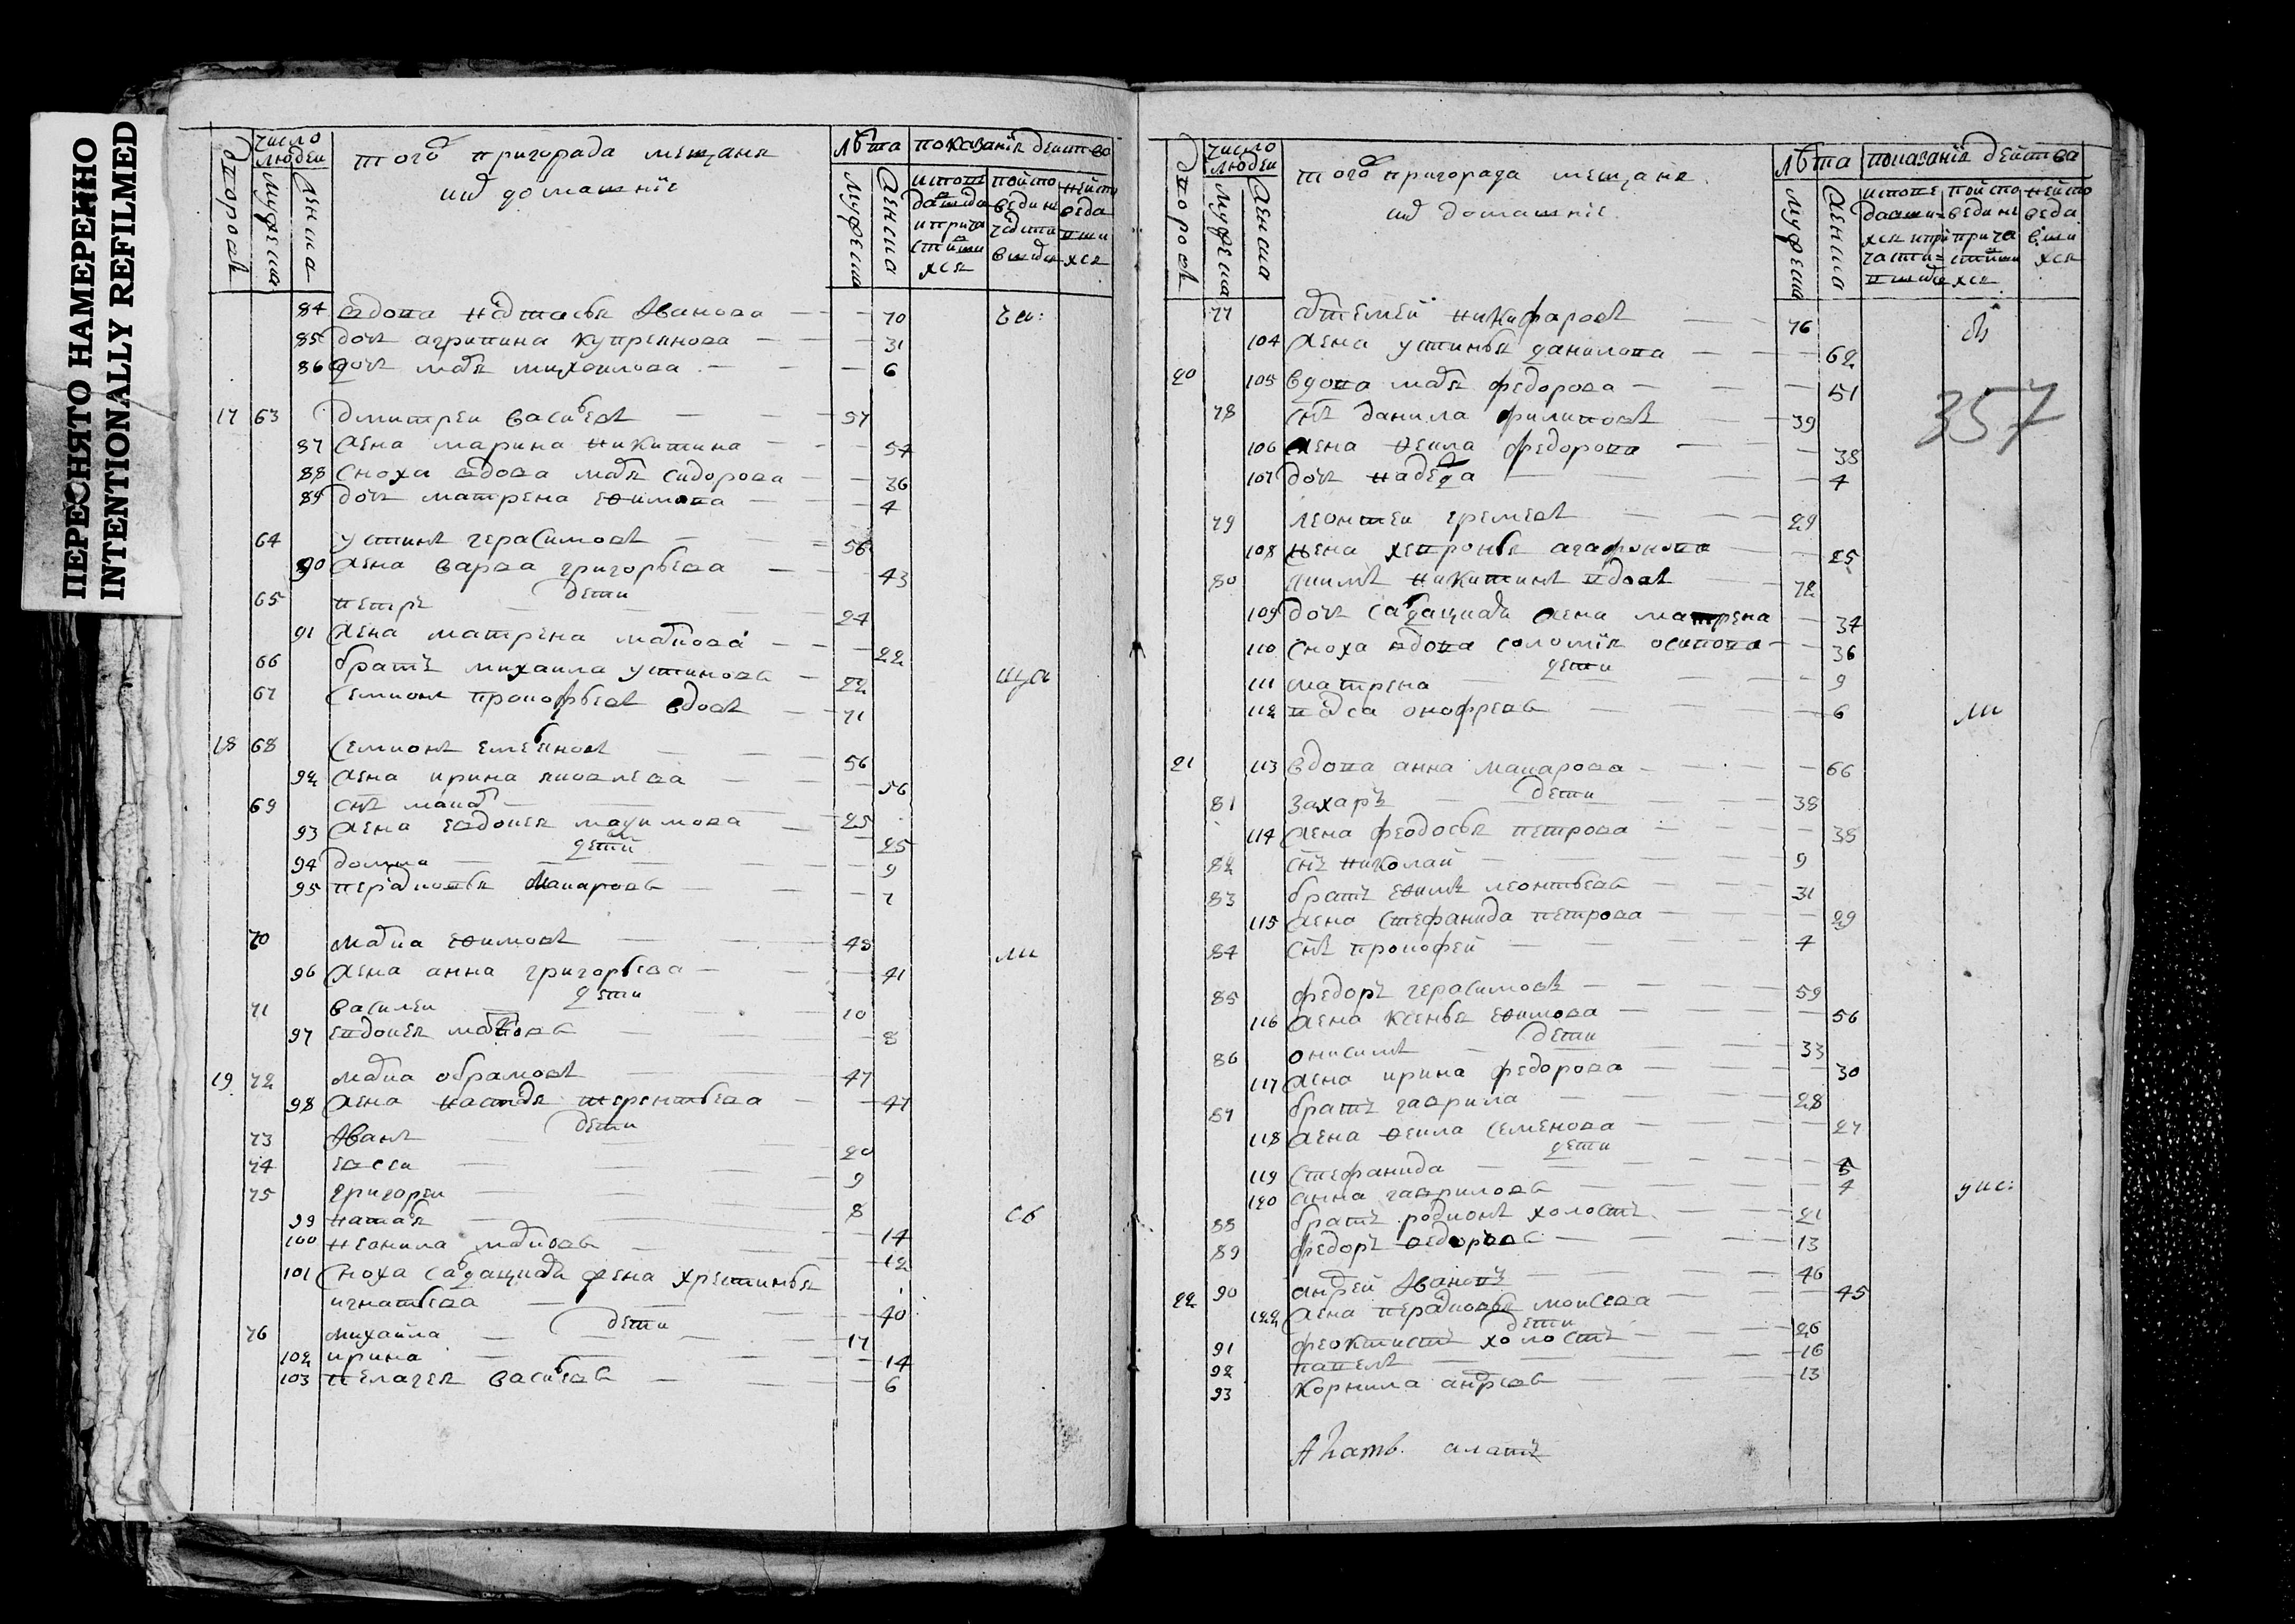 ПЕРЕСНЯТО НАМЕРЕННО
INTENTIONALLY REFILMED
дворовъ
число людеи
мужеска
женска
того пригорада мещане
ихъ домашнiе
лѣта
мужеска
женска
показанiе действо
84 вдова настасья Иванова — 70
85 дочь агрипина купреянова — 31
86 дочь марья михаилова — 6
17 63 дмитреи васильевъ — 57
87 жена марина никитина — 54
88 сноха вдова марья сидорова — 36
89 дочь матрена ефимова — 4
64 устинъ герасимовъ — 56
90 жена варвара григорьева — 43
дети
65 петръ — 24
91 жена матрена маркова — 22
66 братъ михаила устиновъ — 22
67 семионъ прокофьевъ вдовъ — 71
18 68 семионъ емельяновъ — 56
92 жена ирина яковлева — 56
69 сынъ макаръ — 25
93 жена евдокея максимова — 25
дети
94 домна — 9
95 перасковья макаровы — 7
70 марка ефимовъ — 45
96 жена анна григорьева — 41
дети
71 василеи — 10
97 евдокея марковы — 8
19 72 марка обрамовъ — 47
98 жена настасья терентьева — 47
дети
73 Иванъ — 20
74 евсеи — 9
75 григореи — 8
99 наталья — 14
100 неонила марковы — 12
101 сноха салдацкая жена хрестинья
игнатьева — 40
дети
76 михайла — 17
102 ирина — 14
103 пелагея васильевы — 6
дворовъ
число людеи
мужеска
женска
того пригорада мещане
ихъ домашнiе
лѣта
мужеска
женска
показанiе действа
77 артемеи никифаровъ — 76
104 жена устинья данилова — 62
20 105 вдова марья федорова — 51
357
78 сынъ данила филиповъ — 39
106 жена фекла федорова — 38
107 дочь надежда — 4
79 леонтеи еремеевъ — 29
108 жена хевронья агафонова — 25
80 якимъ никитинъ вдовъ — 72
109 дочь салдацкая жена матрена — 34
110 сноха вдова соломiя осипова — 36
дети
111 матрена — 9
112 онофревы — 6
21 113 вдова анна макарова — 66
дети
81 захаръ — 38
114 жена феодосья петрова — 38
82 сынъ николаи — 9
83 братъ ефимъ леонтьевы — 31
115 жена стефанида петрова — 29
84 сынъ прокофеи — 4
85 федоръ герасимовъ — 59
116 жена ксенья ефимова — 56
дети
86 онисимъ — 33
117 жена ирина федорова — 30
87 братъ гаврила — 28
118 жена фекла семенова — 27
дети
119 стефанида — 5
120 анна гавриловы — 4
88 братъ родионъ холостъ — 21
89 федоръ федоровы — 13
22 90 андреи Ивановъ — 46
122 жена перасковья моисеева — 45
дети
91 феоктистъ холостъ — 26
92 павелъ — 16
93 корнила андревы — 13